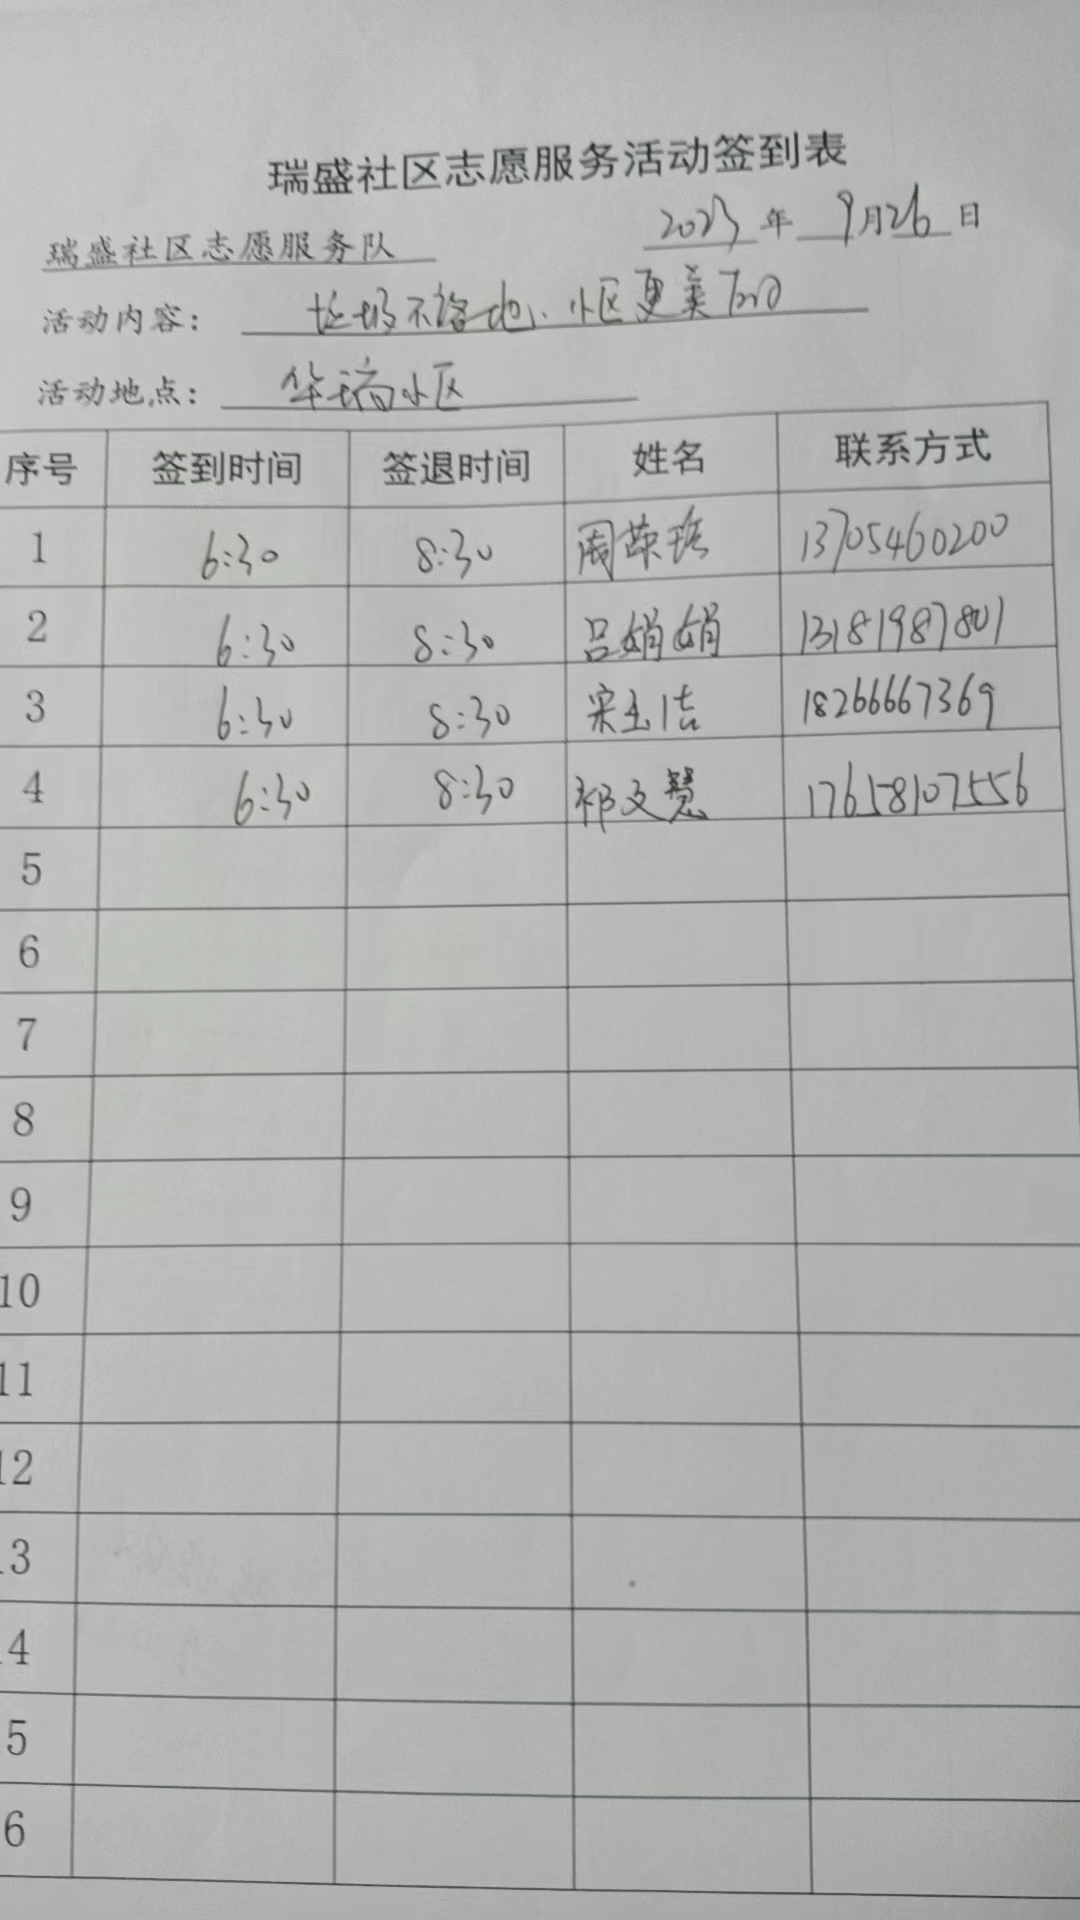 瑞盛社区志愿服务活动签到表
瑞盛社区志愿服务队 2023年 9月26日
活动内容: 垃圾不落地、小区更美丽
活动地点: 华瑞小区
序号 签到时间 签退时间 姓名 联系方式
1 6:30 8:30 周荣 13705460200
2 6:30 8:30 吕娟娟 13181987801
3 6:30 8:30 宋玉洁 18266667369
4 6:30 8:30 祁文慧 17658107556
5
6
7
8
9
10
11
12
3
4
5
6